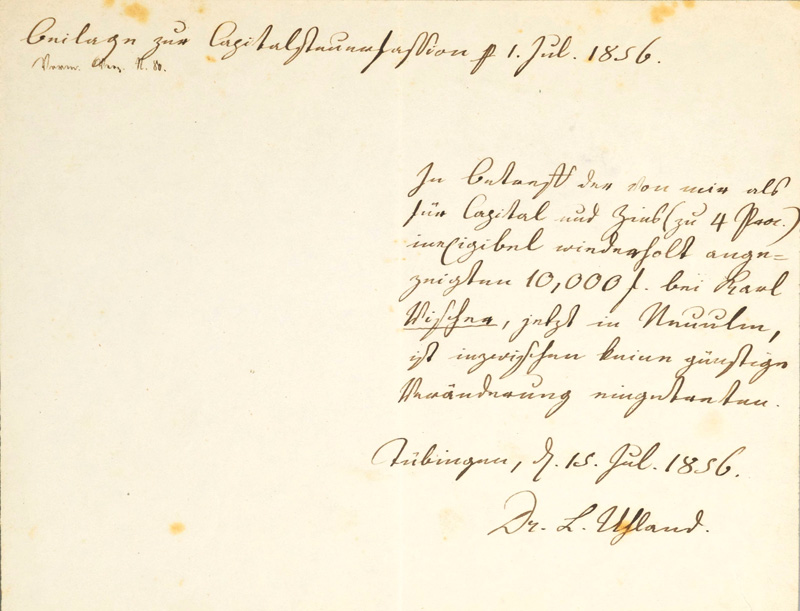 Beilage zur Capitalsteuerfassion p 1. Jul. 1856.
N. 80.
In Betreff der von mir als
für Capital und Zins (zu 4 Proc.)
inexigibel wiederholt ange=
zeigten 10,000 f. bei Karl
Vischer, jetzt in Neuulm,
ist inzwischen keine günstige
Veränderung eingetreten.
Tübingen, d. 15. Jul. 1856.
Dr. L. Uhland.